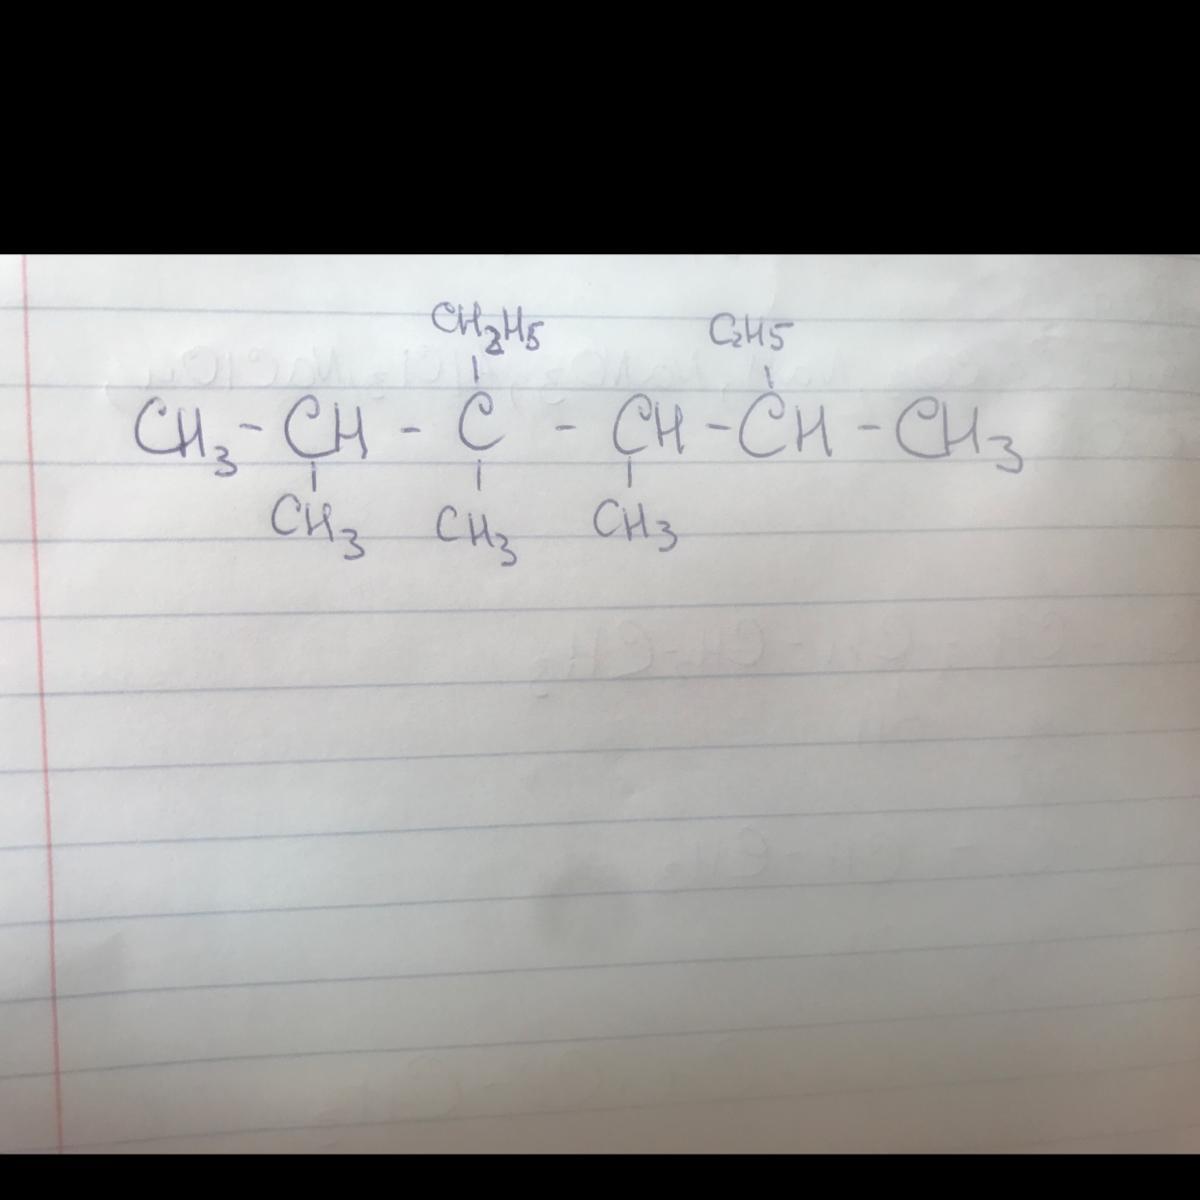 CH2H5 C2H5
CH3 - CH - C - CH - CH - CH3
CH3 CH3 CH3